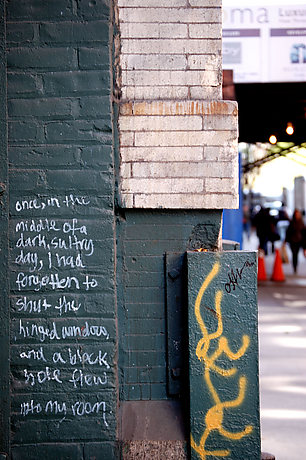 oma
Luxu
once, in the
middle of a
dark, sultry
day, I had
forgotten to
shut the
hinged windows,
and a black
note flew
into my room